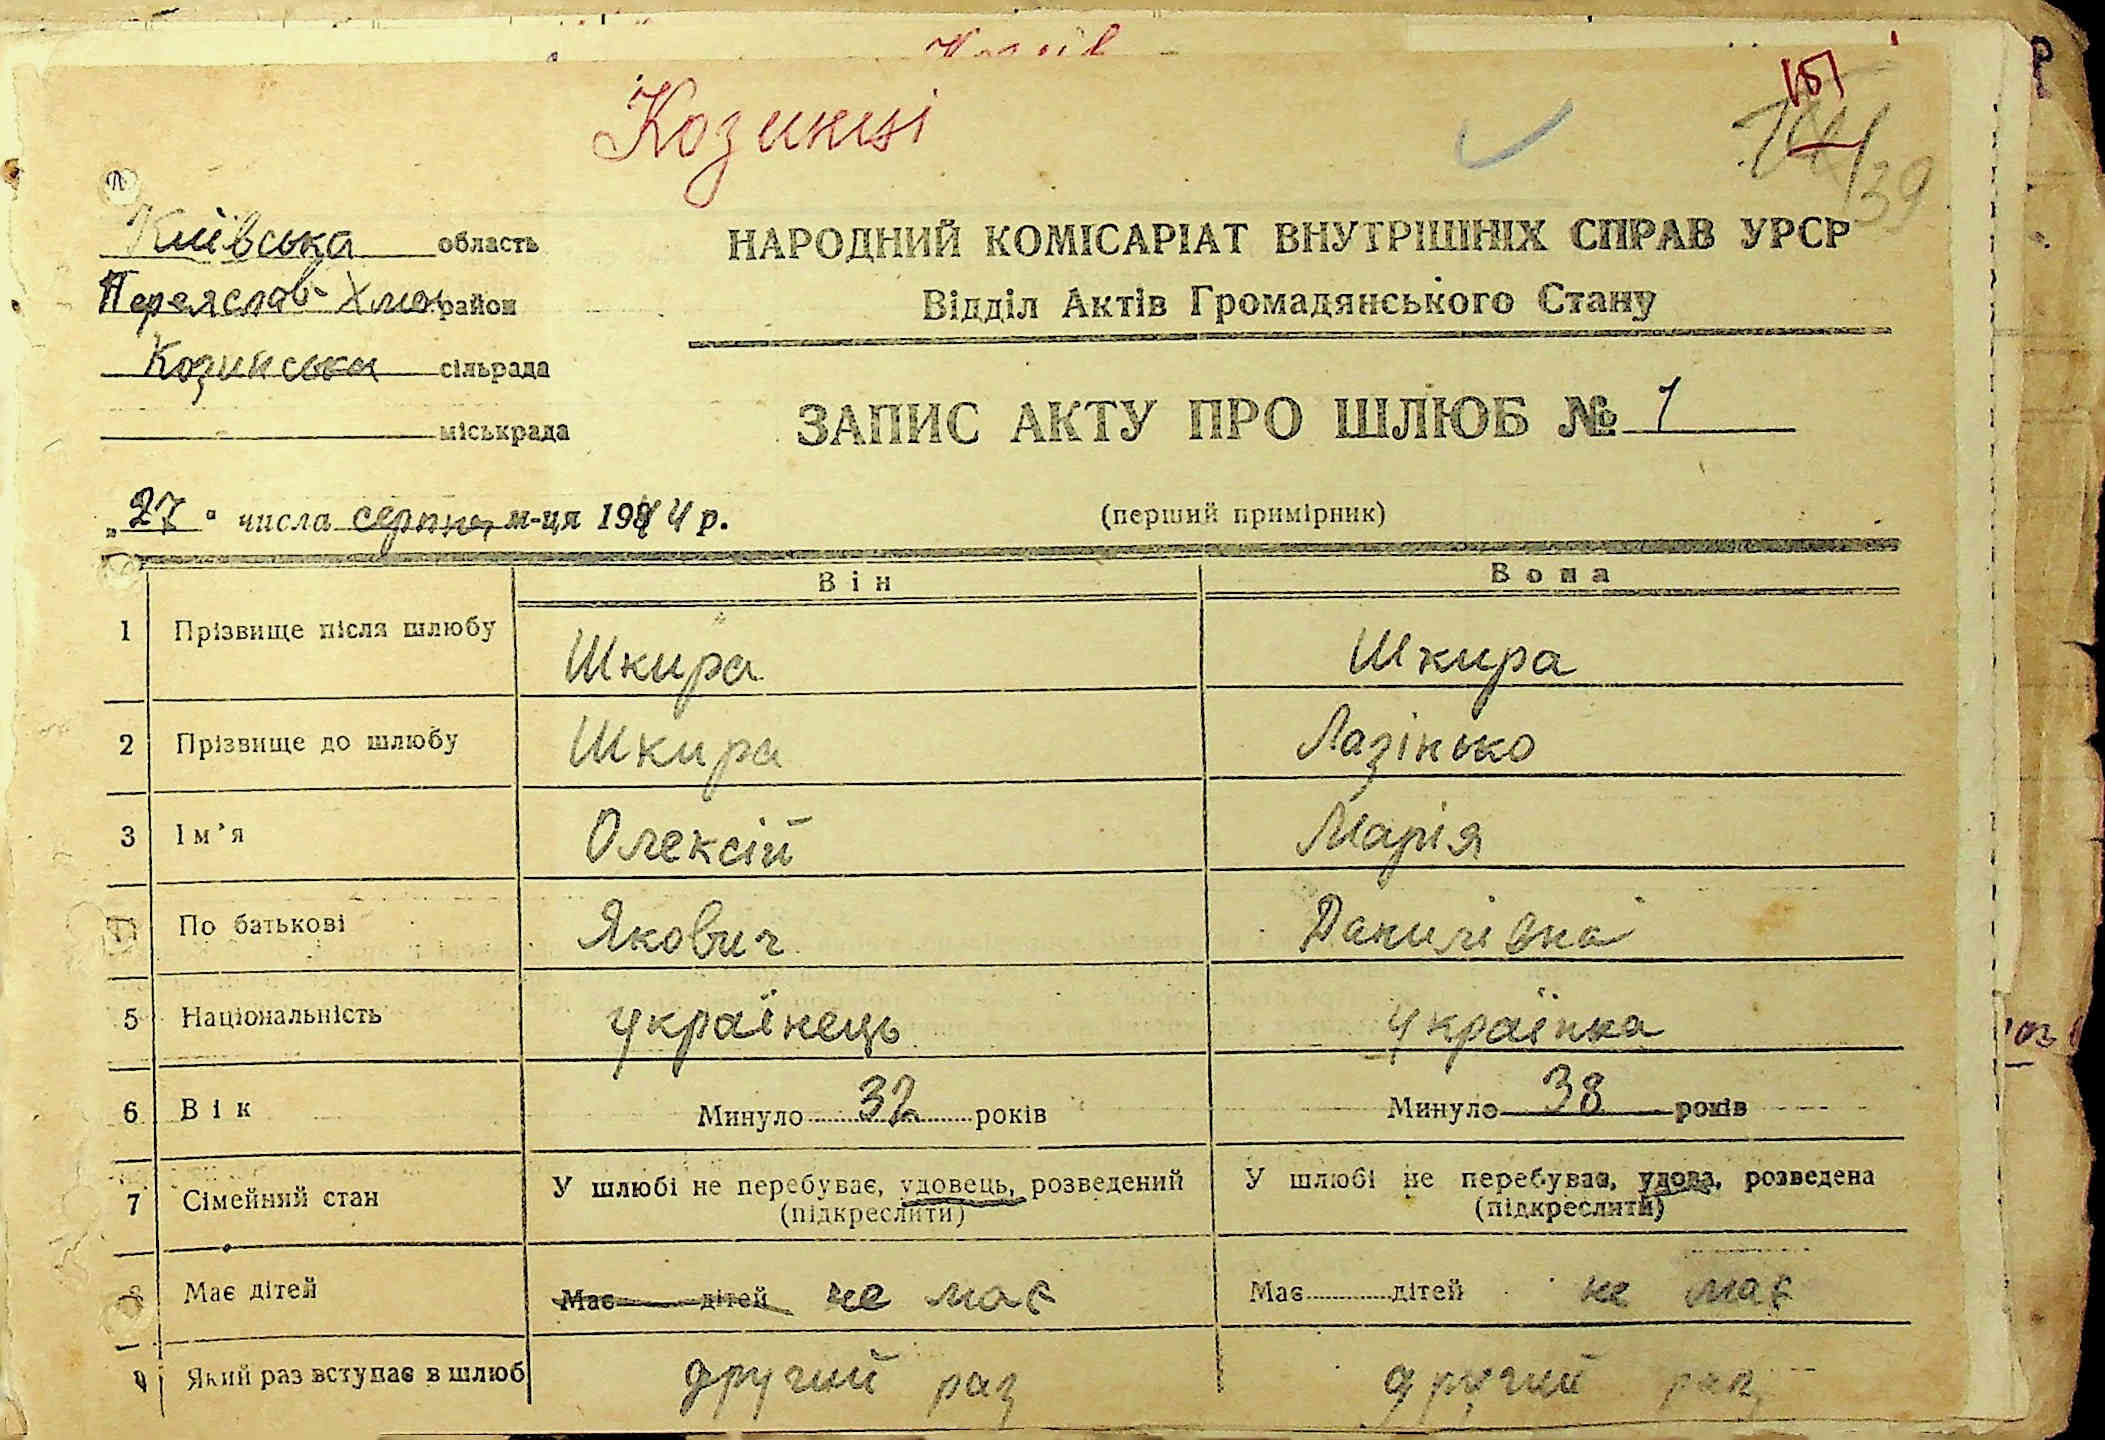 Козинці
151
39
Київська область
НАРОДНИЙ КОМІСАРІАТ ВНУТРІШНІХ СПРАВ УРСР
Переяслав-Хмел район
Відділ Актів Громадянського Стану
Козинська сільрада
міськрада
ЗАПИС АКТУ ПРО ШЛЮБ № 1
„27“ числа серпня м-ця 1944 р.
(перший примірник)
Він Вона
1 Прізвище після шлюбу Шкира Шкира
2 Прізвище до шлюбу Шкира Лазінько
3 Ім’я Олексій Марія
По батькові Якович Данилівна
5 Національність українець українка
6 Вік Минуло 32 років Минуло 38 років
7 Сімейний стан У шлюбі не перебуває, удовець, розведений У шлюбі не перебуває, удова, розведена
(підкреслити) (підкреслити)
8 Має дітей Має дітей не має Має дітей не має
9 Який раз вступає в шлюб другий раз другий раз